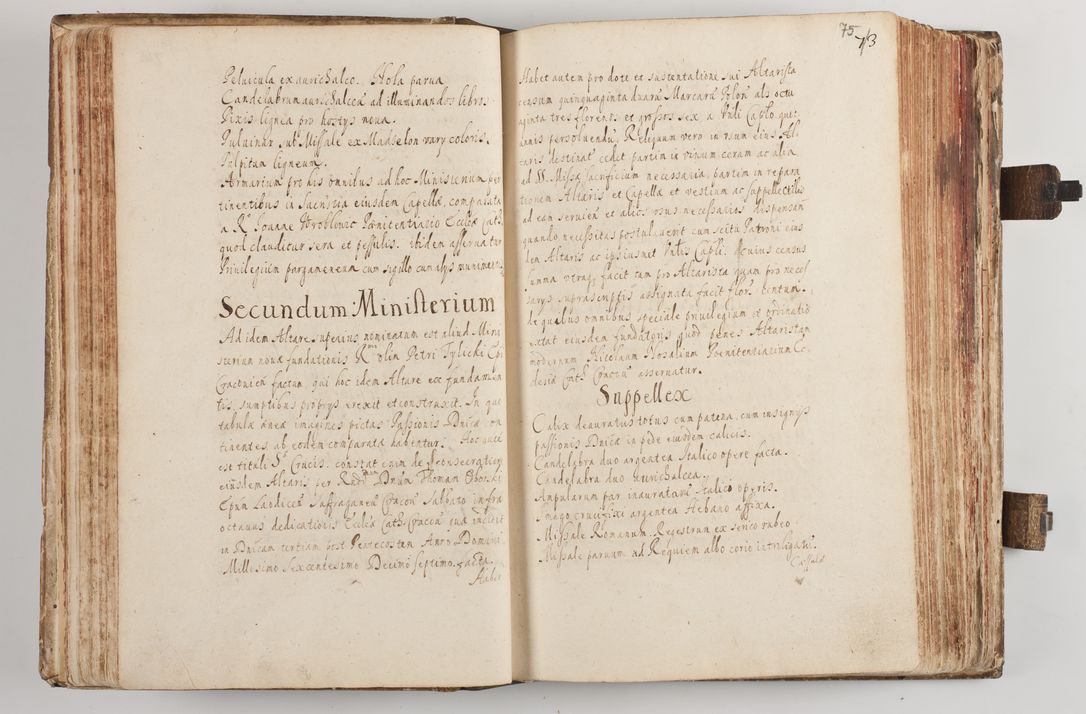 Peluicula ex aurichalco. Nola parua
Candelabrum aurichalceũ ad illuminandos libros.
Pixis lignea pro hostijs noua.
Puluinar sub Missale ex Madselon varij coloris.
Pulpitum ligneum.
Armarium pro his omnibus ad hoc Ministerium per
tinentibus in Sacristia eiusdem Capellæ, comparata
a R. Joanne Wroblowic Pœnitentiario Eccl̃æ Cath.
quod clauditur sera et pessulis. ibidem asseruatur
Priuilegium pargameneum cum sigillo cum alijs munimentis
Secundum Ministerium
Ad idem Altare superius nominatum est aliud Mini
sterium nouæ fundationis Rmi olim Petri Tylicki Ep̃i
Cracouieñ factum, qui hoc idem Altare ex fundamen
tis, sumptibus proprijs erexit et construxit. In quo
tabula ænea imagines pictas Passionis Dnicæ con
tinentes, ab eodem comparata habentur. Hoc autẽ
est tituli S. Crucis. constat enim de consecratione
eiusdem Altaris per Rndm Dnum Thomam Oborski
Ep̃um Laodiceñ Suffraganeũ Cracoũ Sabbato infra
octauas dedicationis Eccl̃æ Cath. Cracoũ quæ incidit
in Dnicam tertiam post Pentecosten Anno Domini
Millesimo Sexcentesimo Decimo septimo facta.
Habet
75
73
Habet autem pro dote et sustentatione sui Altarista
censum quinquaginta duarũ Marcarũ Polõn als octu
aginta tres florenos et grossos sex, a Vnli Caplo quot
annis persoluendũ, Reliquum vero in vsum eius Al
taris destinat cedet partim in vinum ceram ac alia
ad SS. Missæ sacrificium necessaria, partim in repara
tionem Altaris et Capellæ et vestium ac suppellectilis
ad eam seruien et alios vsus necessarios dispensan
quando necessitas postulauerit cum scitu Patroni eius
dem Altaris ac ipsiusmet Vnlis Capli. cuius census
summa vtraq; facit tam pro Altarista quam pro neces
sarijs suprascriptis assignata facit flor. centum.
de quibus omnibus speciale priuilegium et ordinatio
extat eiusdem fundatoris quod penes Altaristam
modernum Nicolaum Nosalium Pœnitentiarium Ec
clesiæ Cath. Cracoũ asseruatur.
Suppellex
Calix deauratus totus cum patena, cum insignijs
passionis Dnicæ in pede eiusdem calicis.
Candelabra duo argentea Italico opere facta.
Candelabra duo aurichalcea.
Ampularum par inauratarũ Italici operis.
Imago crucifixi argentea Hebano affixa.
Missale Romanum. Regestrum ex serico rubeo.
Missale paruum ad Requiem albo corio introligatũ.